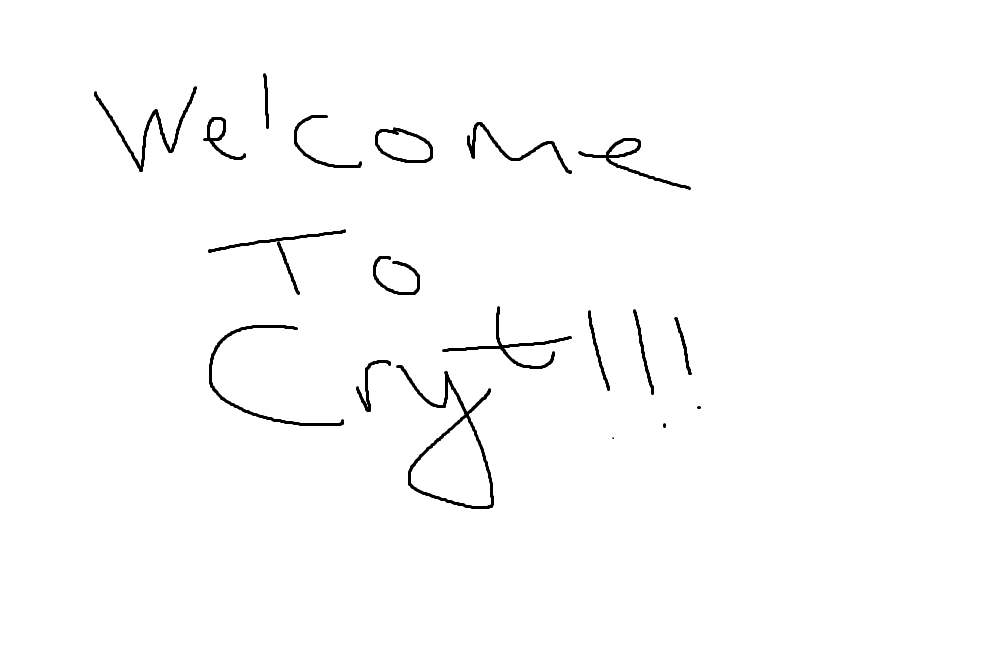 Welcome
To
Cryt!!!